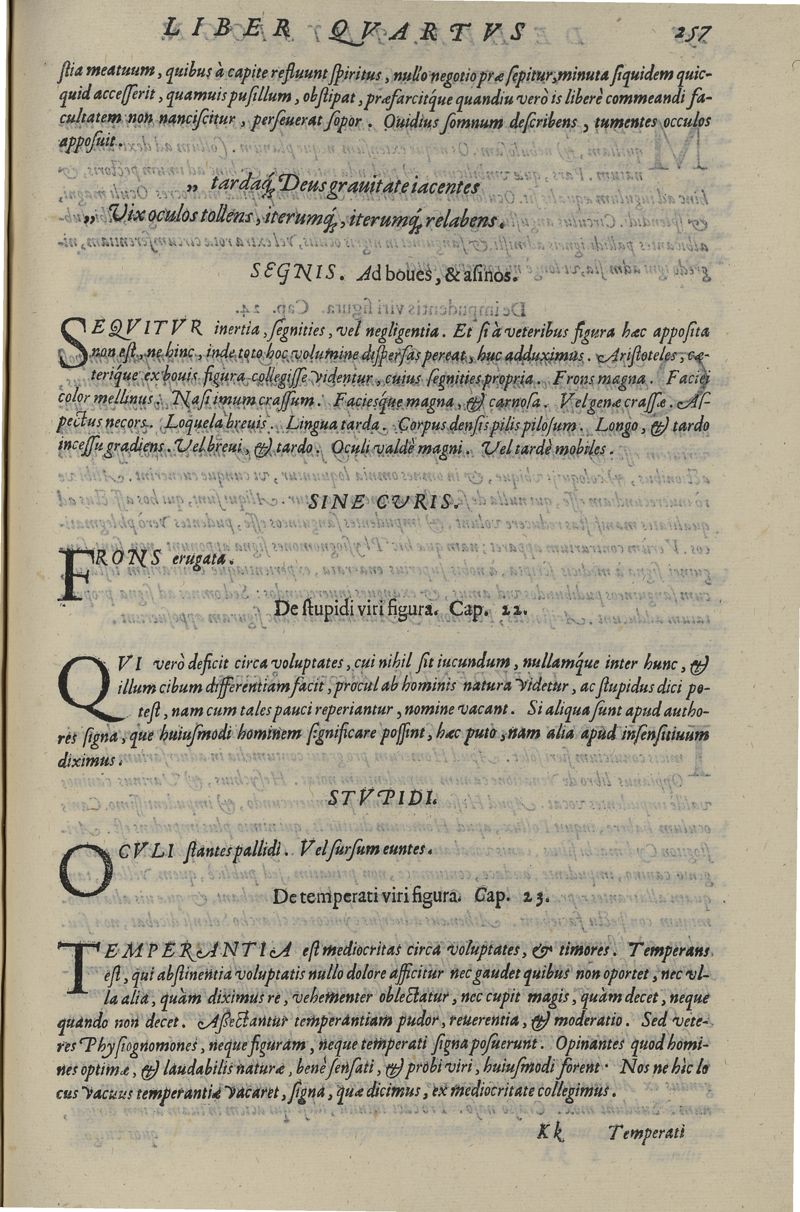 LIBER QVARTVS 257
ſtia meatuum, quibus à capite refluunt ſpiritus, nullo negotio præ ſepitur, minuta ſiquidem quic-
quid acceſſerit, quamuis puſillum, obſtipat, præfarcitque quandiu verò is liberè commeandi fa-
cultatem non nanciſcitur, perſeuerat ſopor. Ouidius ſomnum deſcribens, tumentes occulos
appoſuit.
„ tardaq́; Deus grauitate iacentes
„ Vix oculos tollens, iterumq́;, iterumq́; relabens.
SEGNIS. Ad boues, & aſinos.
SEQVITVR inertia, ſegnities, vel negligentia. Et ſi à veteribus figura hæc appoſita
non eſt, ne hinc, inde toto hoc volumine diſperſas pereat, huc adduximus. Ariſtoteles, cæ-
teriq́ue ex bouis figura collegiſſe videntur, cuius ſegnities propria. Frons magna. Faciei
color mellinus. Naſi imum craſſum. Facieſque magna, & carnoſa. Vel genæ craſſæ. Aſ-
pectus necors. Loquela breuis. Lingua tarda. Corpus denſis pilis piloſum. Longo, & tardo
inceſſu gradiens. Vel breui, & tardo. Oculi valdè magni. Vel tardè mobiles.
SINE CVRIS.
FRONS erugata.
De ſtupidi viri figura. Cap. 22.
QVI verò deficit circa voluptates, cui nihil ſit iucundum, nullamq́ue inter hunc, &
illum cibum differentiam facit, procul ab hominis natura videtur, ac ſtupidus dici po-
teſt, nam cum tales pauci reperiantur, nomine vacant. Si aliqua ſunt apud autho-
res ſigna, que huiuſmodi hominem ſignificare poſſint, hæc puto, nam alia apud inſenſitiuum
diximus.
STVPIDI.
OCVLI ſtantes pallidi. Vel ſurſum euntes.
De temperati viri figura. Cap. 23.
TEMPERANTIA eſt mediocritas circa voluptates, & timores. Temperans
eſt, qui abſtinentia voluptatis nullo dolore afficitur nec gaudet quibus non oportet, nec vl-
la alia, quàm diximus re, vehementer oblectatur, nec cupit magis, quàm decet, neque
quando non decet. Aſſectantur temperantiam pudor, reuerentia, & moderatio. Sed vete-
res Phyſiognomones, neque figuram, neque temperati ſigna poſuerunt. Opinantes quod homi-
nes optimæ, & laudabilis naturæ, benè ſenſati, & probi viri, huiuſmodi forent. Nos ne hic lo
cus vacuus temperantiæ vacaret, ſigna, quæ dicimus, ex mediocritate collegimus.
Kk Temperati